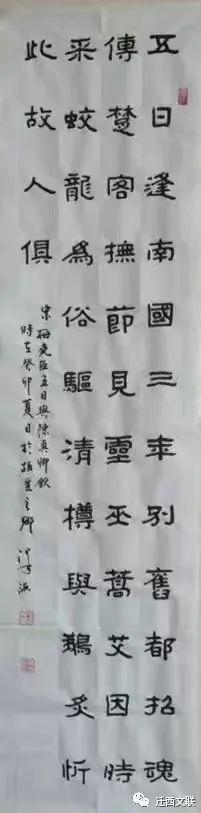 五日逢南國三年别舊都招魂
傳楚客撫節見靈巫蒿艾因時
采蛟龍為俗驅清樽與鵝炙忻
此故人俱
宋梅堯臣五日與陳真卿飲
時在癸卯夏日於之鄉
迁西文联